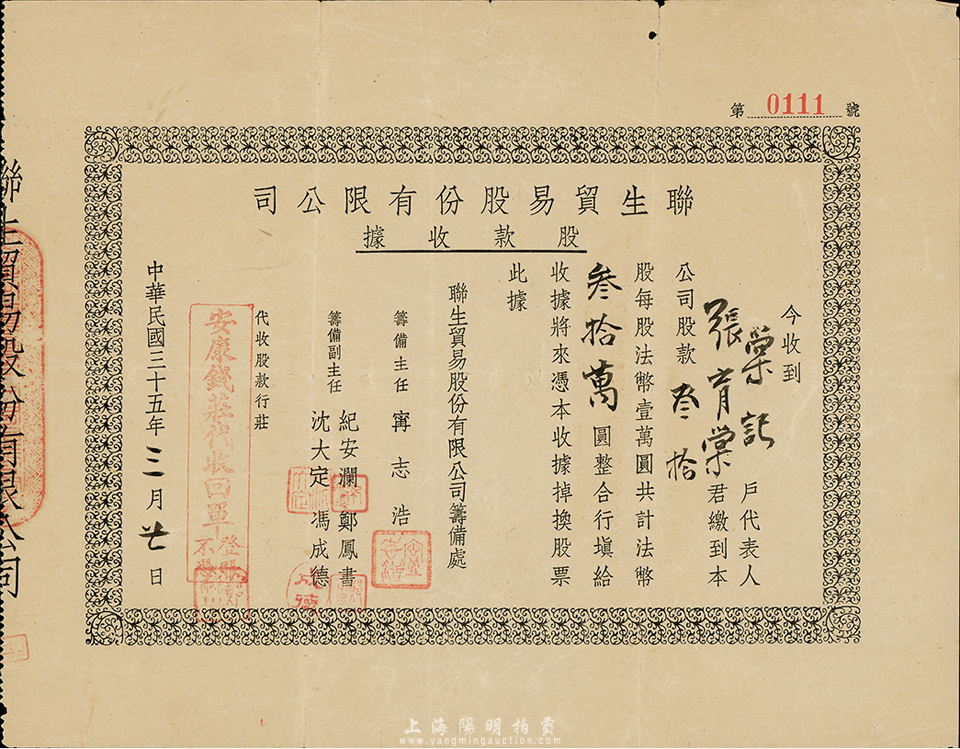 第 0111 號
聯生貿易股份有限公司
股款收據
今收到
榮記
戶代表人
張育棠
君繳到本
公司股款叁拾
股每股法幣壹萬圓共計法幣
叁拾萬圓整合行塡給
收據將來憑本收據掉換股票
此據
聯生貿易股份有限公司籌備處
籌備主任 甯志浩
籌備副主任 紀安瀾 鄭鳳書
沈大定 馮成德
代收股款行莊
安康錢莊代收回單
中華民國三十五年三月廿日
聯生貿易股份有限公司
上海陽明拍賣
www.yangmingauction.com